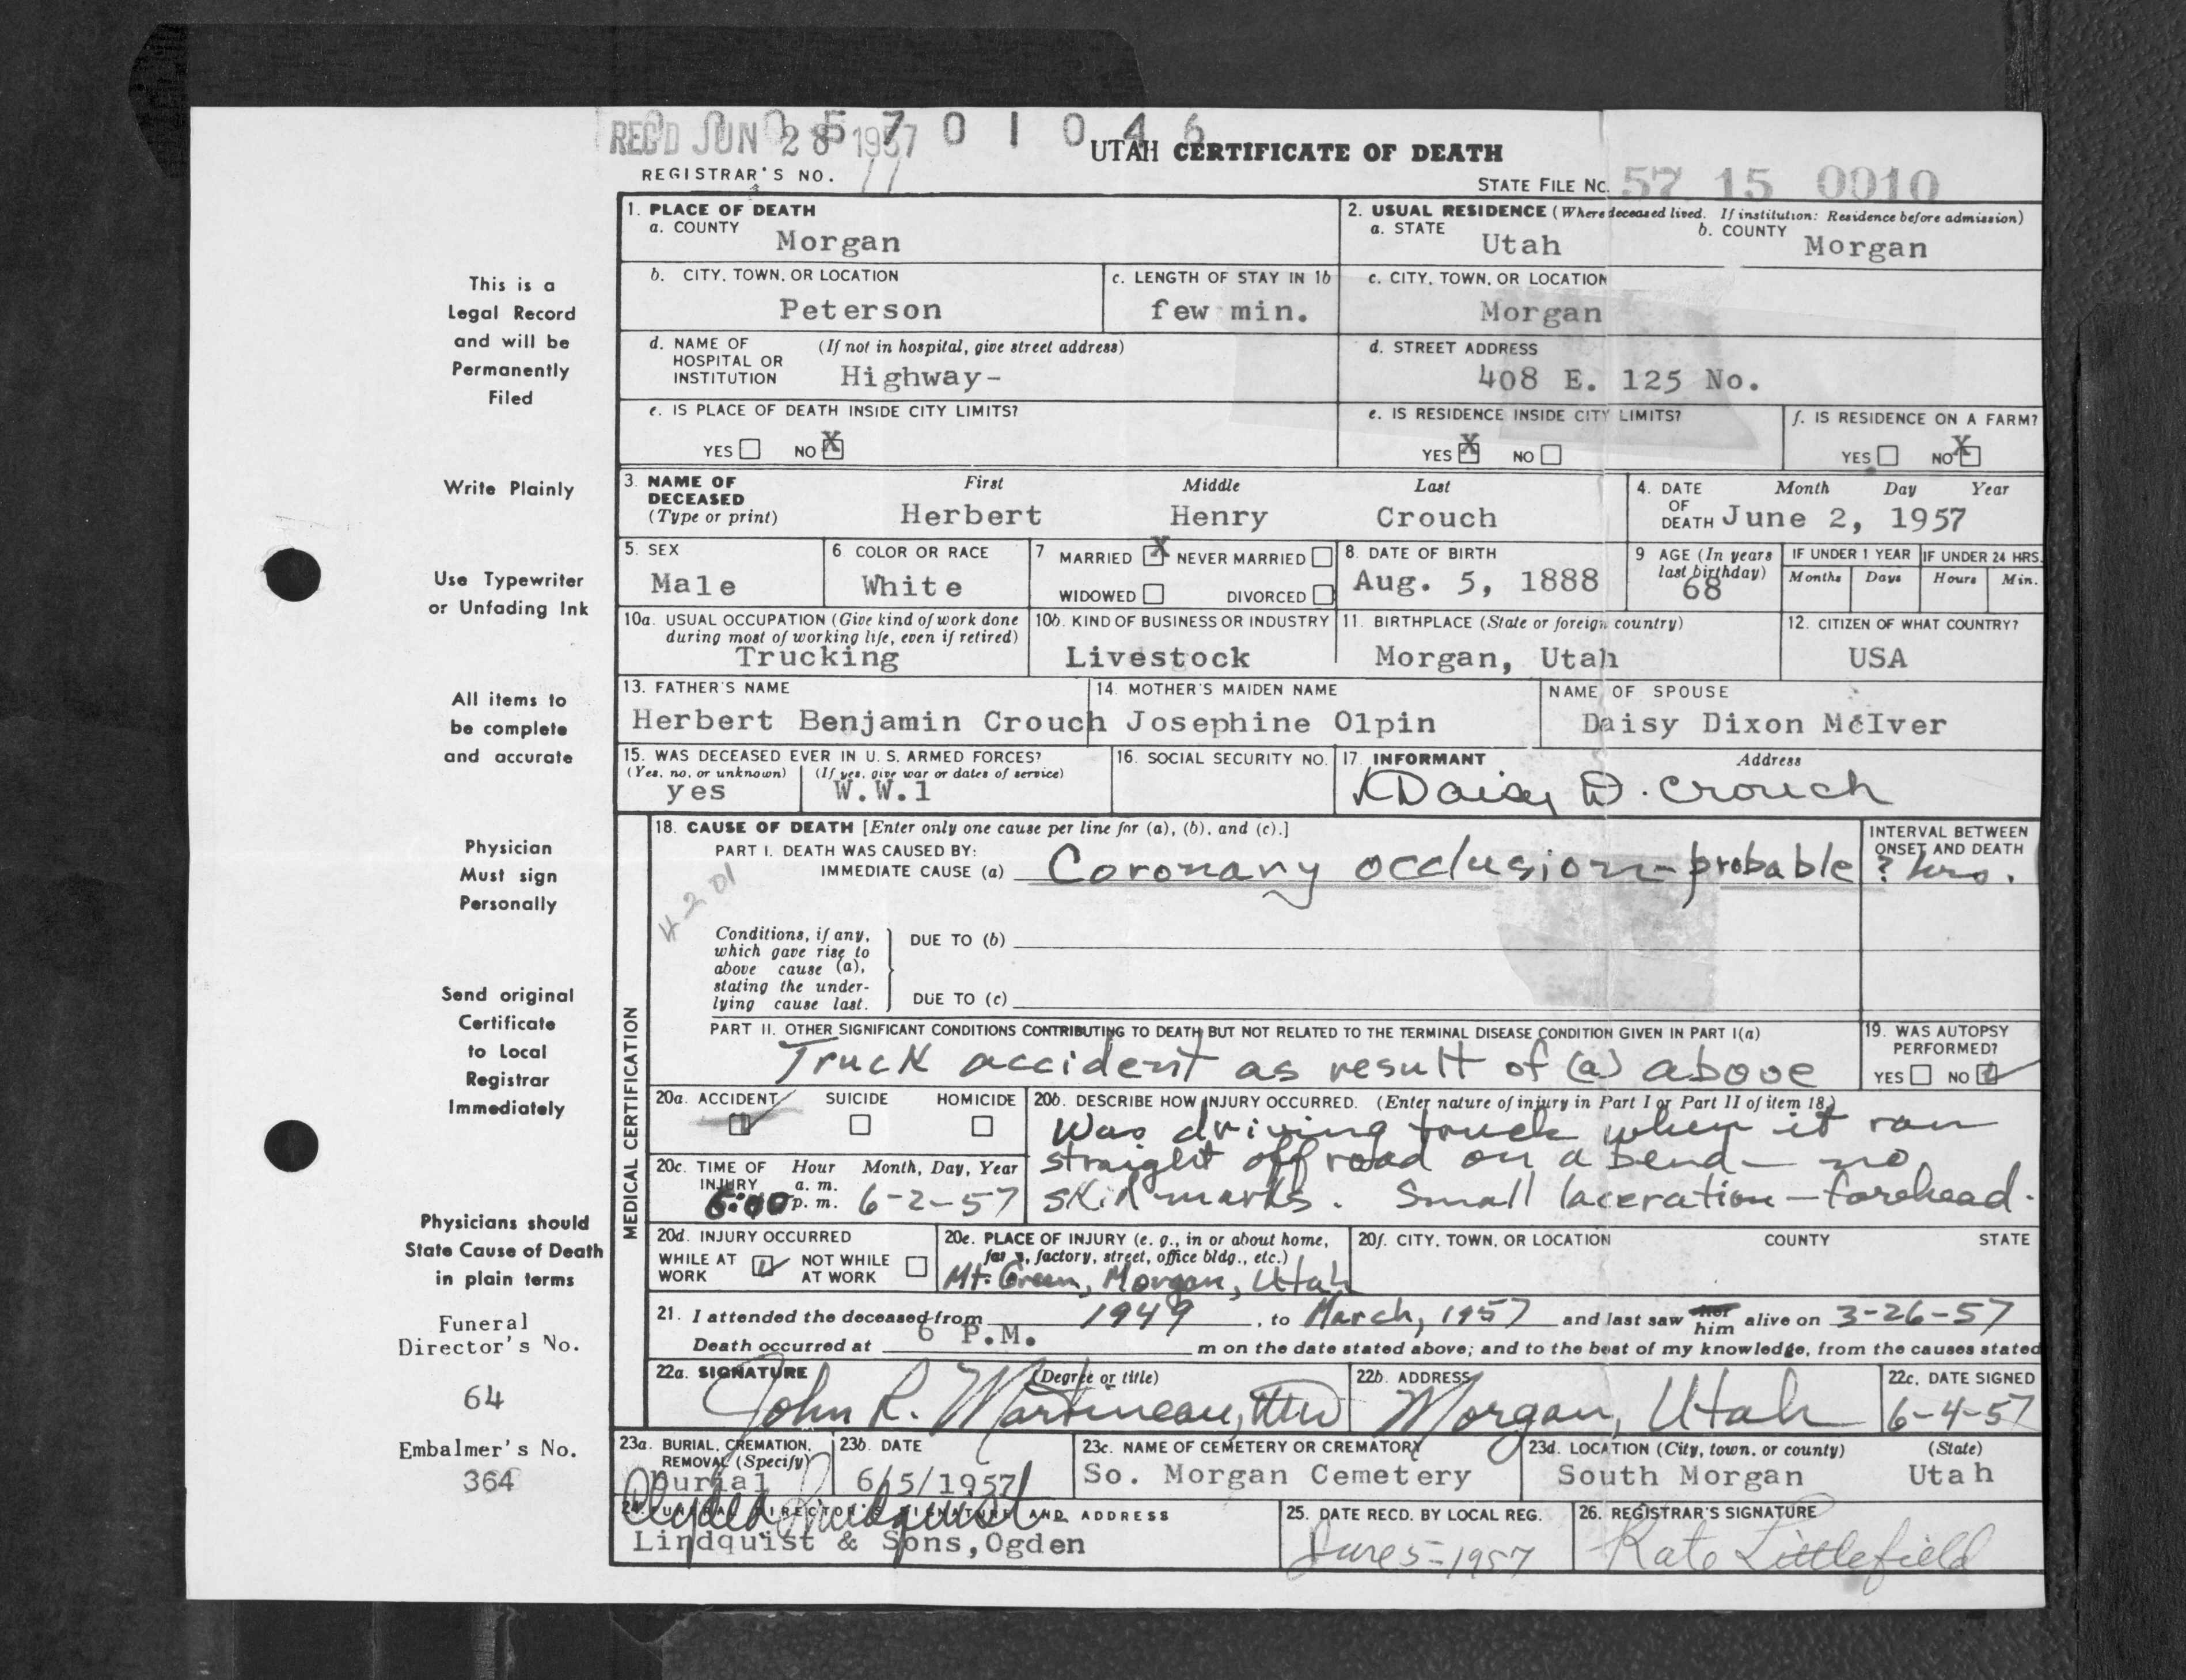 REC'D JUN 28 1957
5701046
UTAH CERTIFICATE OF DEATH
REGISTRAR'S NO. 11
STATE FILE NO. 57 15 0010
1. PLACE OF DEATH
a. COUNTY Morgan
2. USUAL RESIDENCE (Where deceased lived. If institution: Residence before admission)
a. STATE Utah b. COUNTY Morgan
b. CITY, TOWN, OR LOCATION Peterson
c. LENGTH OF STAY IN 1b few min.
c. CITY, TOWN, OR LOCATION Morgan
d. NAME OF HOSPITAL OR INSTITUTION (If not in hospital, give street address) Highway-
d. STREET ADDRESS 408 E. 125 No.
e. IS PLACE OF DEATH INSIDE CITY LIMITS?
YES NO X
e. IS RESIDENCE INSIDE CITY LIMITS?
YES X NO
f. IS RESIDENCE ON A FARM?
YES NO X
3. NAME OF DECEASED (Type or print)
First Middle Last
Herbert Henry Crouch
4. DATE OF DEATH Month Day Year
June 2, 1957
5. SEX Male
6 COLOR OR RACE White
7 MARRIED X NEVER MARRIED
WIDOWED DIVORCED
8. DATE OF BIRTH Aug. 5, 1888
9 AGE (In years last birthday) 68
IF UNDER 1 YEAR Months Days
IF UNDER 24 HRS. Hours Min.
10a. USUAL OCCUPATION (Give kind of work done during most of working life, even if retired) Trucking
10b. KIND OF BUSINESS OR INDUSTRY Livestock
11. BIRTHPLACE (State or foreign country) Morgan, Utah
12. CITIZEN OF WHAT COUNTRY? USA
13. FATHER'S NAME Herbert Benjamin Crouch
14. MOTHER'S MAIDEN NAME Josephine Olpin
NAME OF SPOUSE Daisy Dixon McIver
15. WAS DECEASED EVER IN U. S. ARMED FORCES?
(Yes, no, or unknown) yes
(If yes, give war or dates of service) W.W.1
16. SOCIAL SECURITY NO.
17. INFORMANT Address
Daisy D. Crouch
MEDICAL CERTIFICATION
18. CAUSE OF DEATH [Enter only one cause per line for (a), (b), and (c).]
PART I. DEATH WAS CAUSED BY:
IMMEDIATE CAUSE (a) Coronary occlusion-probable
INTERVAL BETWEEN ONSET AND DEATH
? hrs.
4201
Conditions, if any, which gave rise to above cause (a), stating the underlying cause last.
DUE TO (b)
DUE TO (c)
PART II. OTHER SIGNIFICANT CONDITIONS CONTRIBUTING TO DEATH BUT NOT RELATED TO THE TERMINAL DISEASE CONDITION GIVEN IN PART I(a)
Truck accident as result of (a) above
19. WAS AUTOPSY PERFORMED?
YES NO
20a. ACCIDENT SUICIDE HOMICIDE
20b. DESCRIBE HOW INJURY OCCURRED. (Enter nature of injury in Part I or Part II of item 18.)
Was driving truck when it ran
straight off road on a bend - no
skid marks. Small laceration - forehead.
20c. TIME OF INJURY Hour Month, Day, Year
a. m.
6:00 p. m. 6-2-57
20d. INJURY OCCURRED
WHILE AT WORK NOT WHILE AT WORK
20e. PLACE OF INJURY (e. g., in or about home, farm, factory, street, office bldg., etc.)
Mt. Green, Morgan, Utah
20f. CITY, TOWN, OR LOCATION COUNTY STATE
21. I attended the deceased from 1949, to March, 1957 and last saw her him alive on 3-26-57
Death occurred at 6 P.M. m on the date stated above; and to the best of my knowledge, from the causes stated
22a. SIGNATURE (Degree or title)
John R. Martineau, MD
22b. ADDRESS Morgan, Utah
22c. DATE SIGNED 6-4-57
23a. BURIAL, CREMATION, REMOVAL (Specify) burial
23b. DATE 6/5/1957
23c. NAME OF CEMETERY OR CREMATORY So. Morgan Cemetery
23d. LOCATION (City, town, or county) (State)
South Morgan Utah
24. FUNERAL DIRECTOR'S SIGNATURE AND ADDRESS
Lindquist
Lindquist & Sons, Ogden
25. DATE RECD. BY LOCAL REG. June 5-1957
26. REGISTRAR'S SIGNATURE Kate Littlefield
This is a
Legal Record
and will be
Permanently
Filed
Write Plainly
Use Typewriter
or Unfading Ink
All items to
be complete
and accurate
Physician
Must sign
Personally
Send original
Certificate
to Local
Registrar
Immediately
Physicians should
State Cause of Death
in plain terms
Funeral
Director's No.
64
Embalmer's No.
364